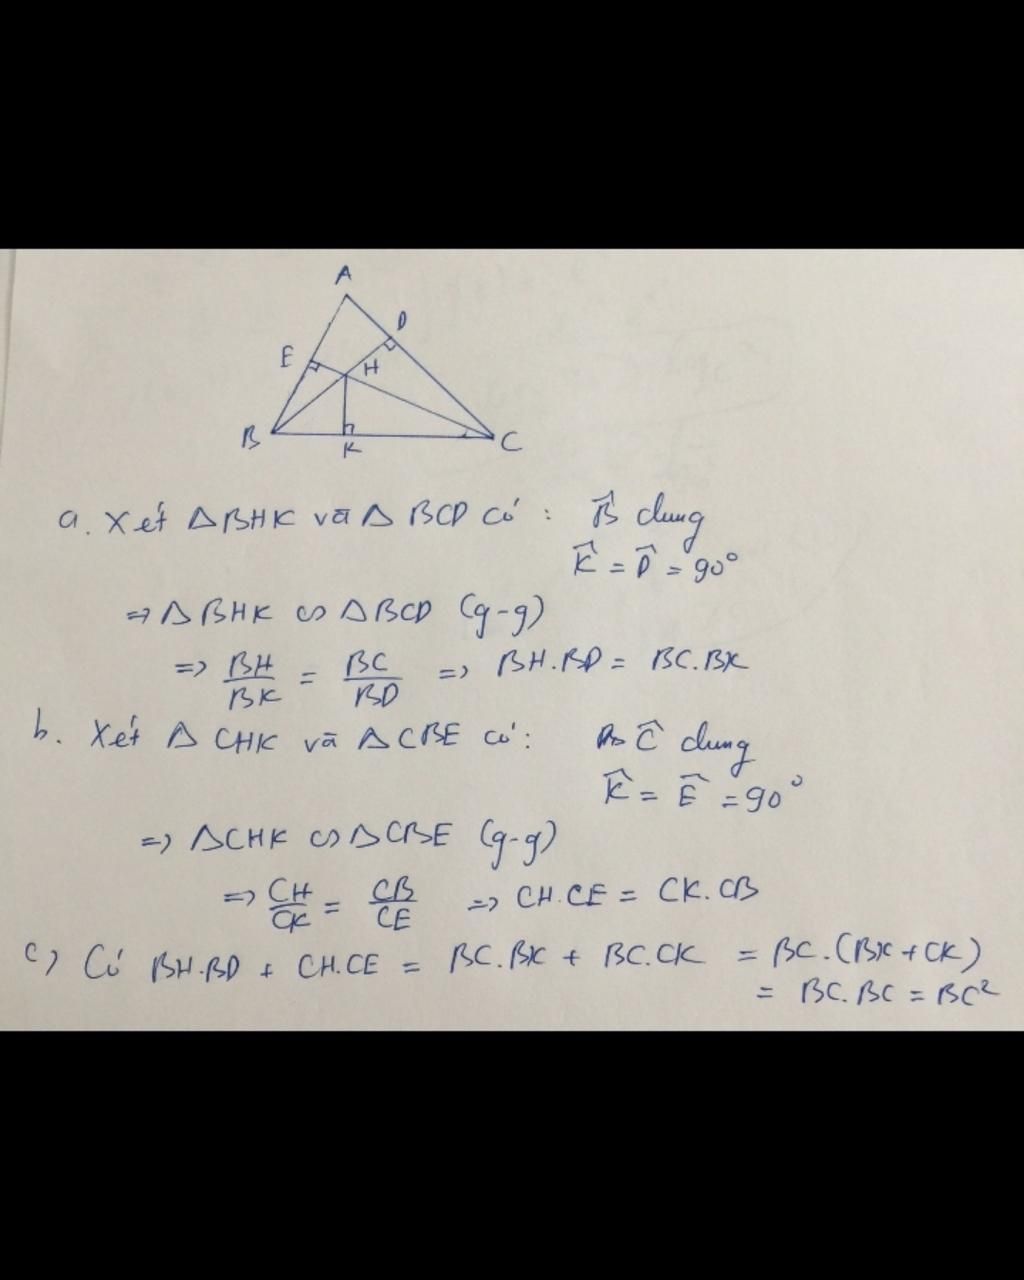 A
D
E
H
B
K
C
a. Xét ΔBHK và Δ BCD có : B̂ chung
K̂ = D̂ = 90°
=> Δ BHK ∽ ΔBCD (g-g)
=> BH/BK = BC/BD => BH.BD = BC.BK
b. Xét Δ CHK và ΔCBE có : Ĉ chung
K̂ = Ê = 90°
=> ΔCHK ∽ ΔCBE (g-g)
=> CH/CK = CB/CE => CH.CE = CK.CB
c) Có BH.BD + CH.CE = BC.BK + BC.CK = BC.(BK + CK)
= BC.BC = BC²